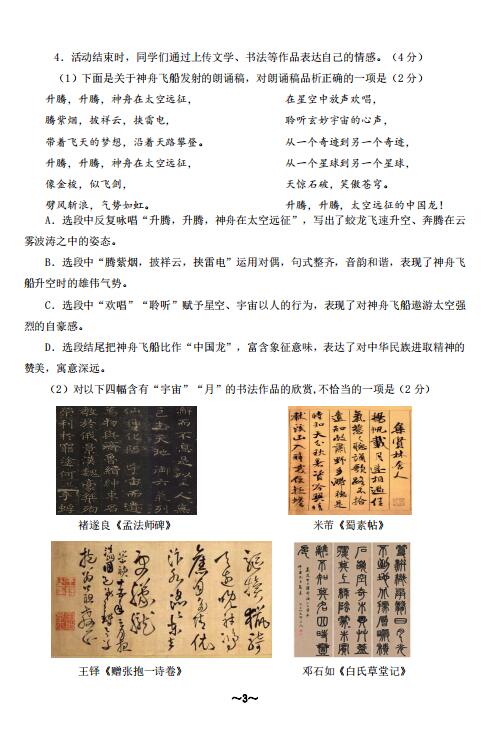 4．活动结束时，同学们通过上传文学、书法等作品表达自己的情感。（4 分）
（1）下面是关于神舟飞船发射的朗诵稿，对朗诵稿品析正确的一项是（2 分）
升腾，升腾，神舟在太空远征，
在星空中放声欢唱，
腾紫烟，披祥云，挟雷电，
聆听玄妙宇宙的心声，
带着飞天的梦想，沿着天路攀登。
从一个奇迹到另一个奇迹，
升腾，升腾，神舟在太空远征，
从一个星球到另一个星球，
像金梭，似飞剑，
天惊石破，笑傲苍穹。
劈风斩浪，气势如虹。
升腾，升腾，太空远征的中国龙！
A．选段中反复咏唱“升腾，升腾，神舟在太空远征”，写出了蛟龙飞速升空、奔腾在云
雾波涛之中的姿态。
B．选段中“腾紫烟，披祥云，挟雷电”运用对偶，句式整齐，音韵和谐，表现了神舟飞
船升空时的雄伟气势。
C．选段中“欢唱”“聆听”赋予星空、宇宙以人的行为，表现了对神舟飞船遨游太空强
烈的自豪感。
D．选段结尾把神舟飞船比作“中国龙”，富含象征意味，表达了对中华民族进取精神的
赞美，寓意深远。
（2）对以下四幅含有“宇宙”“月”的书法作品的欣赏,不恰当的一项是（2 分）
褚遂良《孟法师碑》
米芾《蜀素帖》
王铎《赠张抱一诗卷》
邓石如《白氏草堂记》
～3～